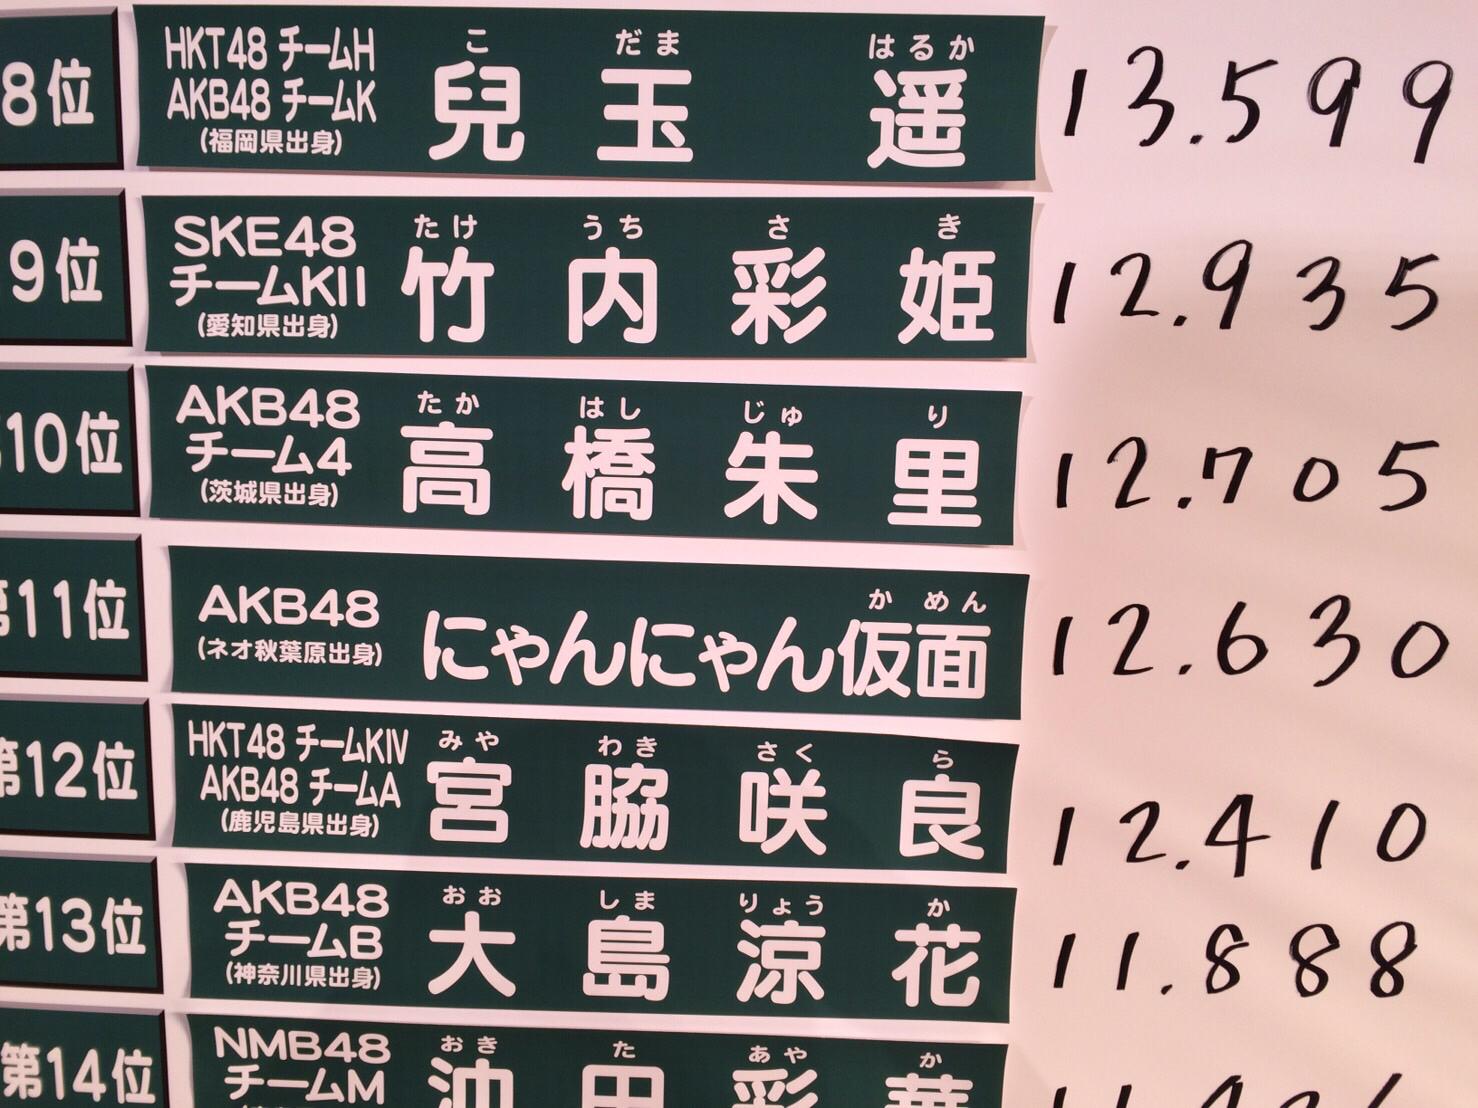 8位 HKT48 チームH AKB48 チームK (福岡県出身) 兒玉 遥 こ だま はるか 13.599
9位 SKE48 チームKII (愛知県出身) 竹内彩姫 たけ うち さ き 12.935
10位 AKB48 チーム4 (茨城県出身) 高橋朱里 たか はし じゅ り 12.705
第11位 AKB48 (ネオ秋葉原出身) にゃんにゃん仮面 か めん 12.630
第12位 HKT48 チームKIV AKB48 チームA (鹿児島県出身) 宮脇咲良 みや わき さく ら 12.410
第13位 AKB48 チームB (神奈川県出身) 大島涼花 おお しま りょう か 11.888
第14位 NMB48 チームM 沖田彩華 おき た あや か